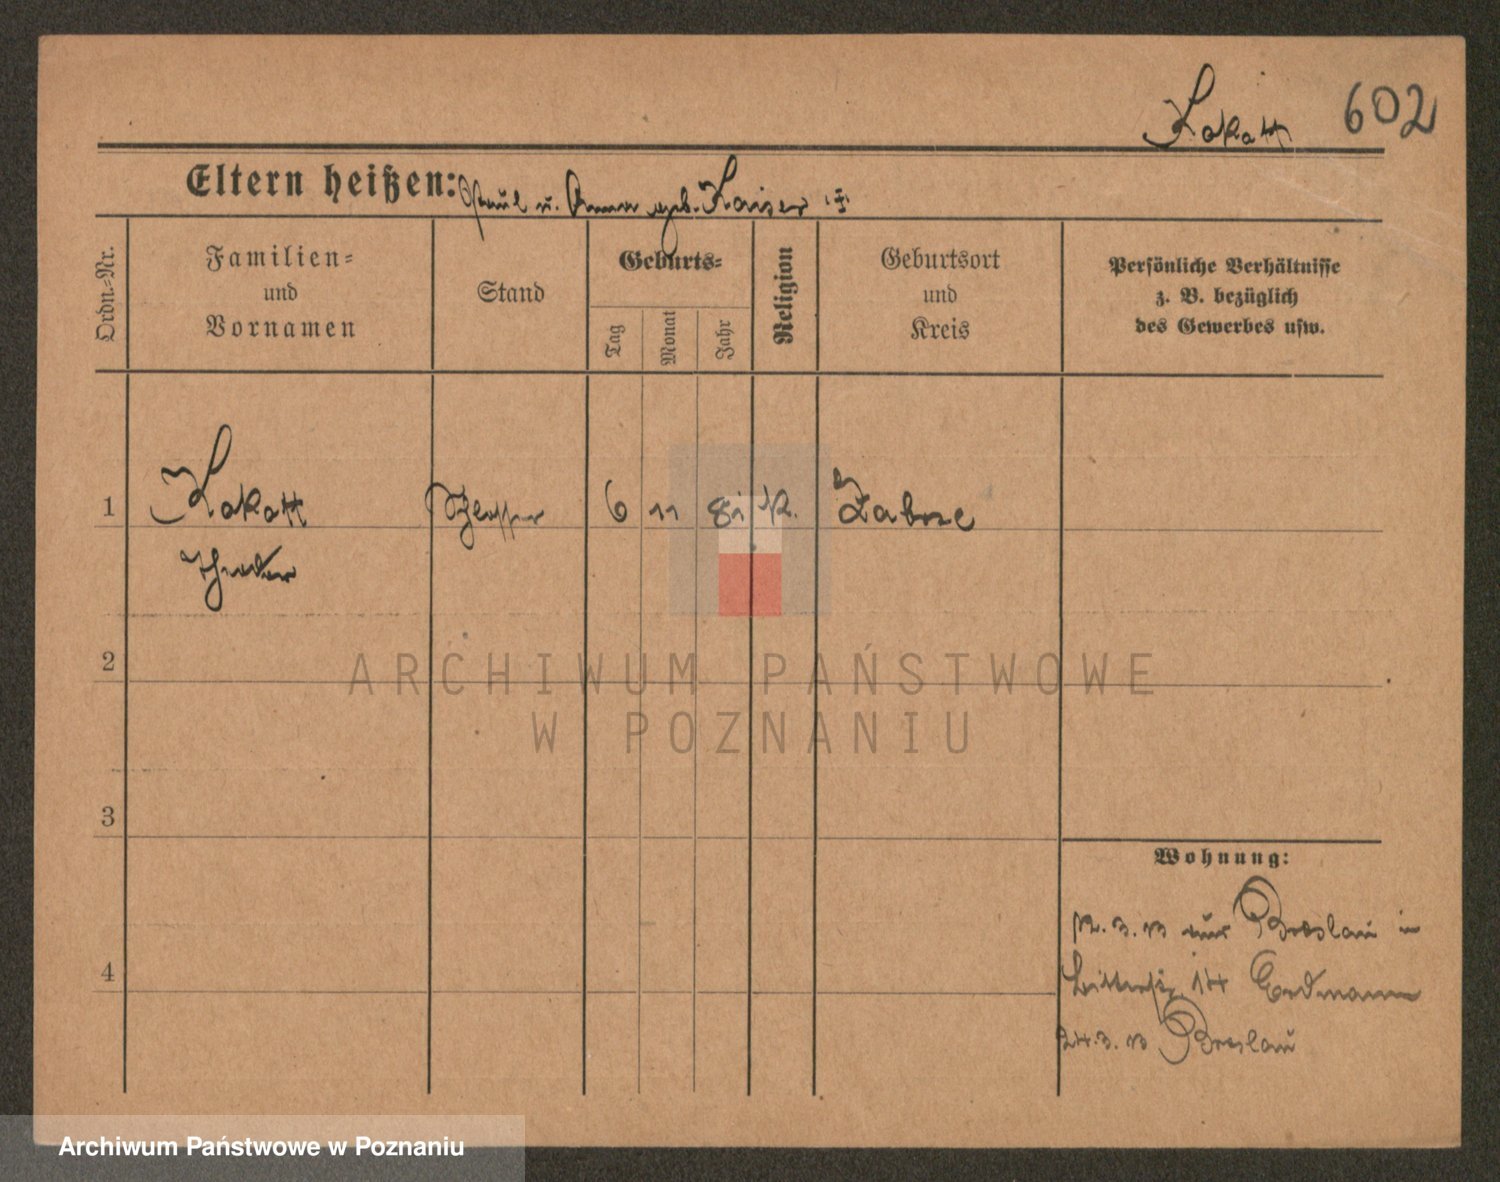 Kokott 602
Eltern heißen: Paul u. Anna geb. Kaiser
Ordn.-Nr.
Familien-
und
Vornamen
Stand
Geburts-
Tag
Monat
Jahr
Religion
Geburtsort
und
Kreis
Persönliche Verhältnisse
z. B. bezüglich
des Gewerbes usw.
1 Kokott 6 11 81 k. Zabrze
Theodor
2
3
4
Wohnung:
12.3.13 aus Breslau in
14 Erdmann
24.3.13 Breslau
ARCHIWUM PAŃSTWOWE
W POZNANIU
Archiwum Państwowe w Poznaniu